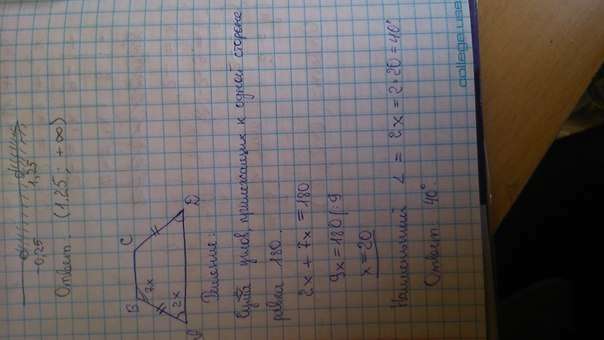 -0,25 1,25
Ответ: (1.25; +∞)
B C
2x
2x
D
Решение:
Сумма углов, прилежащих к одной стороне
равна 180.
2x + 7x = 180
9x = 180 | : 9
x = 20
Наименьший ∠ = 2x = 2·20 = 40°
Ответ: 40°
college.use